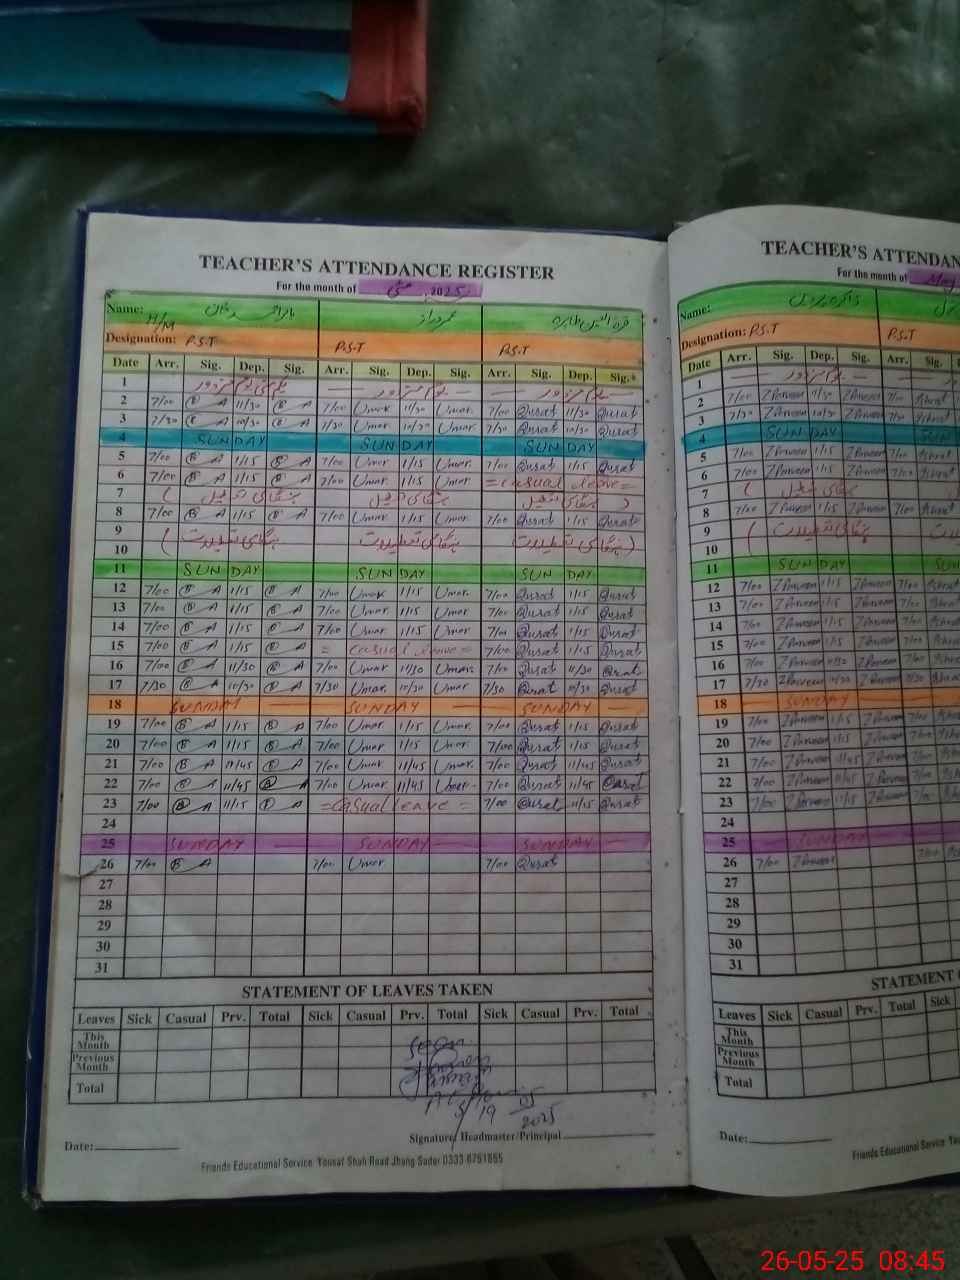 TEACHER'S ATTENDANCE REGISTER
For the month of مئی 2025
Name: H/M
Designation: P.S.T P.S.T P.S.T
Date Arr. Sig. Dep. Sig. Arr. Sig. Dep. Sig. Arr. Sig. Dep. Sig.
1 یوم مزدور یوم مزدور
2 7/00 B A 11/30 B A 7/00 Umar 11/30 Umar 7/00 Qurat 11/30 Qurat
3 7/30 B A 10/30 B A 7/30 Umar 10/30 Umar 7/30 Qurat 10/30 Qurat
4 SUNDAY SUNDAY SUNDAY
5 7/00 B A 1/15 B A 7/00 Umar 1/15 Umar 7/00 Qurat 1/15 Qurat
6 7/00 B A 1/15 B A 7/00 Umar 1/15 Umar = casual leave =
7
8 7/00 B A 1/15 B A 7/00 Umar 1/15 Umar 7/00 Qurat 1/15 Qurat
9
10
11 SUNDAY SUNDAY SUNDAY
12 7/00 B A 1/15 B A 7/00 Umar 1/15 Umar 7/00 Qurat 1/15 Qurat
13 7/00 B A 1/15 B A 7/00 Umar 1/15 Umar 7/00 Qurat 1/15 Qurat
14 7/00 B A 1/15 B A 7/00 Umar 1/15 Umar 7/00 Qurat 1/15 Qurat
15 7/00 B A 1/15 B A = casual leave = 7/00 Qurat 1/15 Qurat
16 7/00 B A 11/30 B A 7/00 Umar 11/30 Umar 7/00 Qurat 11/30 Qurat
17 7/30 B A 10/30 B A 7/30 Umar 10/30 Umar 7/30 Qurat 10/30 Qurat
18 SUNDAY SUNDAY SUNDAY
19 7/00 B A 1/15 B A 7/00 Umar 1/15 Umar 7/00 Qurat 1/15 Qurat
20 7/00 B A 1/15 B A 7/00 Umar 1/15 Umar 7/00 Qurat 1/15 Qurat
21 7/00 B A 11/45 B A 7/00 Umar 11/45 Umar 7/00 Qurat 11/45 Qurat
22 7/00 B A 11/45 B A 7/00 Umar 11/45 Umar 7/00 Qurat 11/45 Qurat
23 7/00 B A 11/15 B A = casual leave = 7/00 Qurat 11/15 Qurat
24
25 SUNDAY SUNDAY SUNDAY
26 7/00 B A 7/00 Umar 7/00 Qurat
27
28
29
30
31
STATEMENT OF LEAVES TAKEN
Leaves Sick Casual Prv. Total Sick Casual Prv. Total Sick Casual Prv. Total
This Month
Previous Month
Total
Seen
19/05/2025
Date:
Signature Headmaster/Principal
Friends Educational Service Yousaf Shah Road Jhang Sader 0333-6761855
TEACHER'S ATTENDAN
For the month of May
Name:
Designation: P.S.T P.S.T
Date Arr. Sig. Dep. Sig. Arr. Sig.
1 یوم مزدور
2 7/00 Z Parveen 11/30 Z Parveen 7/00
3 7/30 Z Parveen 10/30 Z Parveen 7/30
4 SUNDAY SUN
5 7/00 Z Parveen 1/15 Z Parveen 7/00
6 7/00 Z Parveen 1/15 Z Parveen 7/00
7
8 7/00 Z Parveen 1/15 Z Parveen 7/00
9
10
11 SUNDAY SUN
12 7/00 Z Parveen 1/15 Z Parveen 7/00
13 7/00 Z Parveen 1/15 Z Parveen 7/00
14 7/00 Z Parveen 1/15 Z Parveen 7/00
15 7/00 Z Parveen 1/15 Z Parveen 7/00
16 7/00 Z Parveen 11/30 Z Parveen 7/00
17 7/30 Z Parveen 10/30 Z Parveen 7/30
18 SUNDAY
19 7/00 Z Parveen 1/15 Z Parveen 7/00
20 7/00 Z Parveen 1/15 Z Parveen 7/00
21 7/00 Z Parveen 11/45 Z Parveen 7/00
22 7/00 Z Parveen 11/45 Z Parveen 7/00
23 7/00 Z Parveen 11/15 Z Parveen 7/00
24
25 SUNDAY
26 7/00 Z Parveen 7/00
27
28
29
30
31
STATEMENT
Leaves Sick Casual Prv. Total Sick
This Month
Previous Month
Total
Date:
Friends Educational Service You
26-05-25 08:45